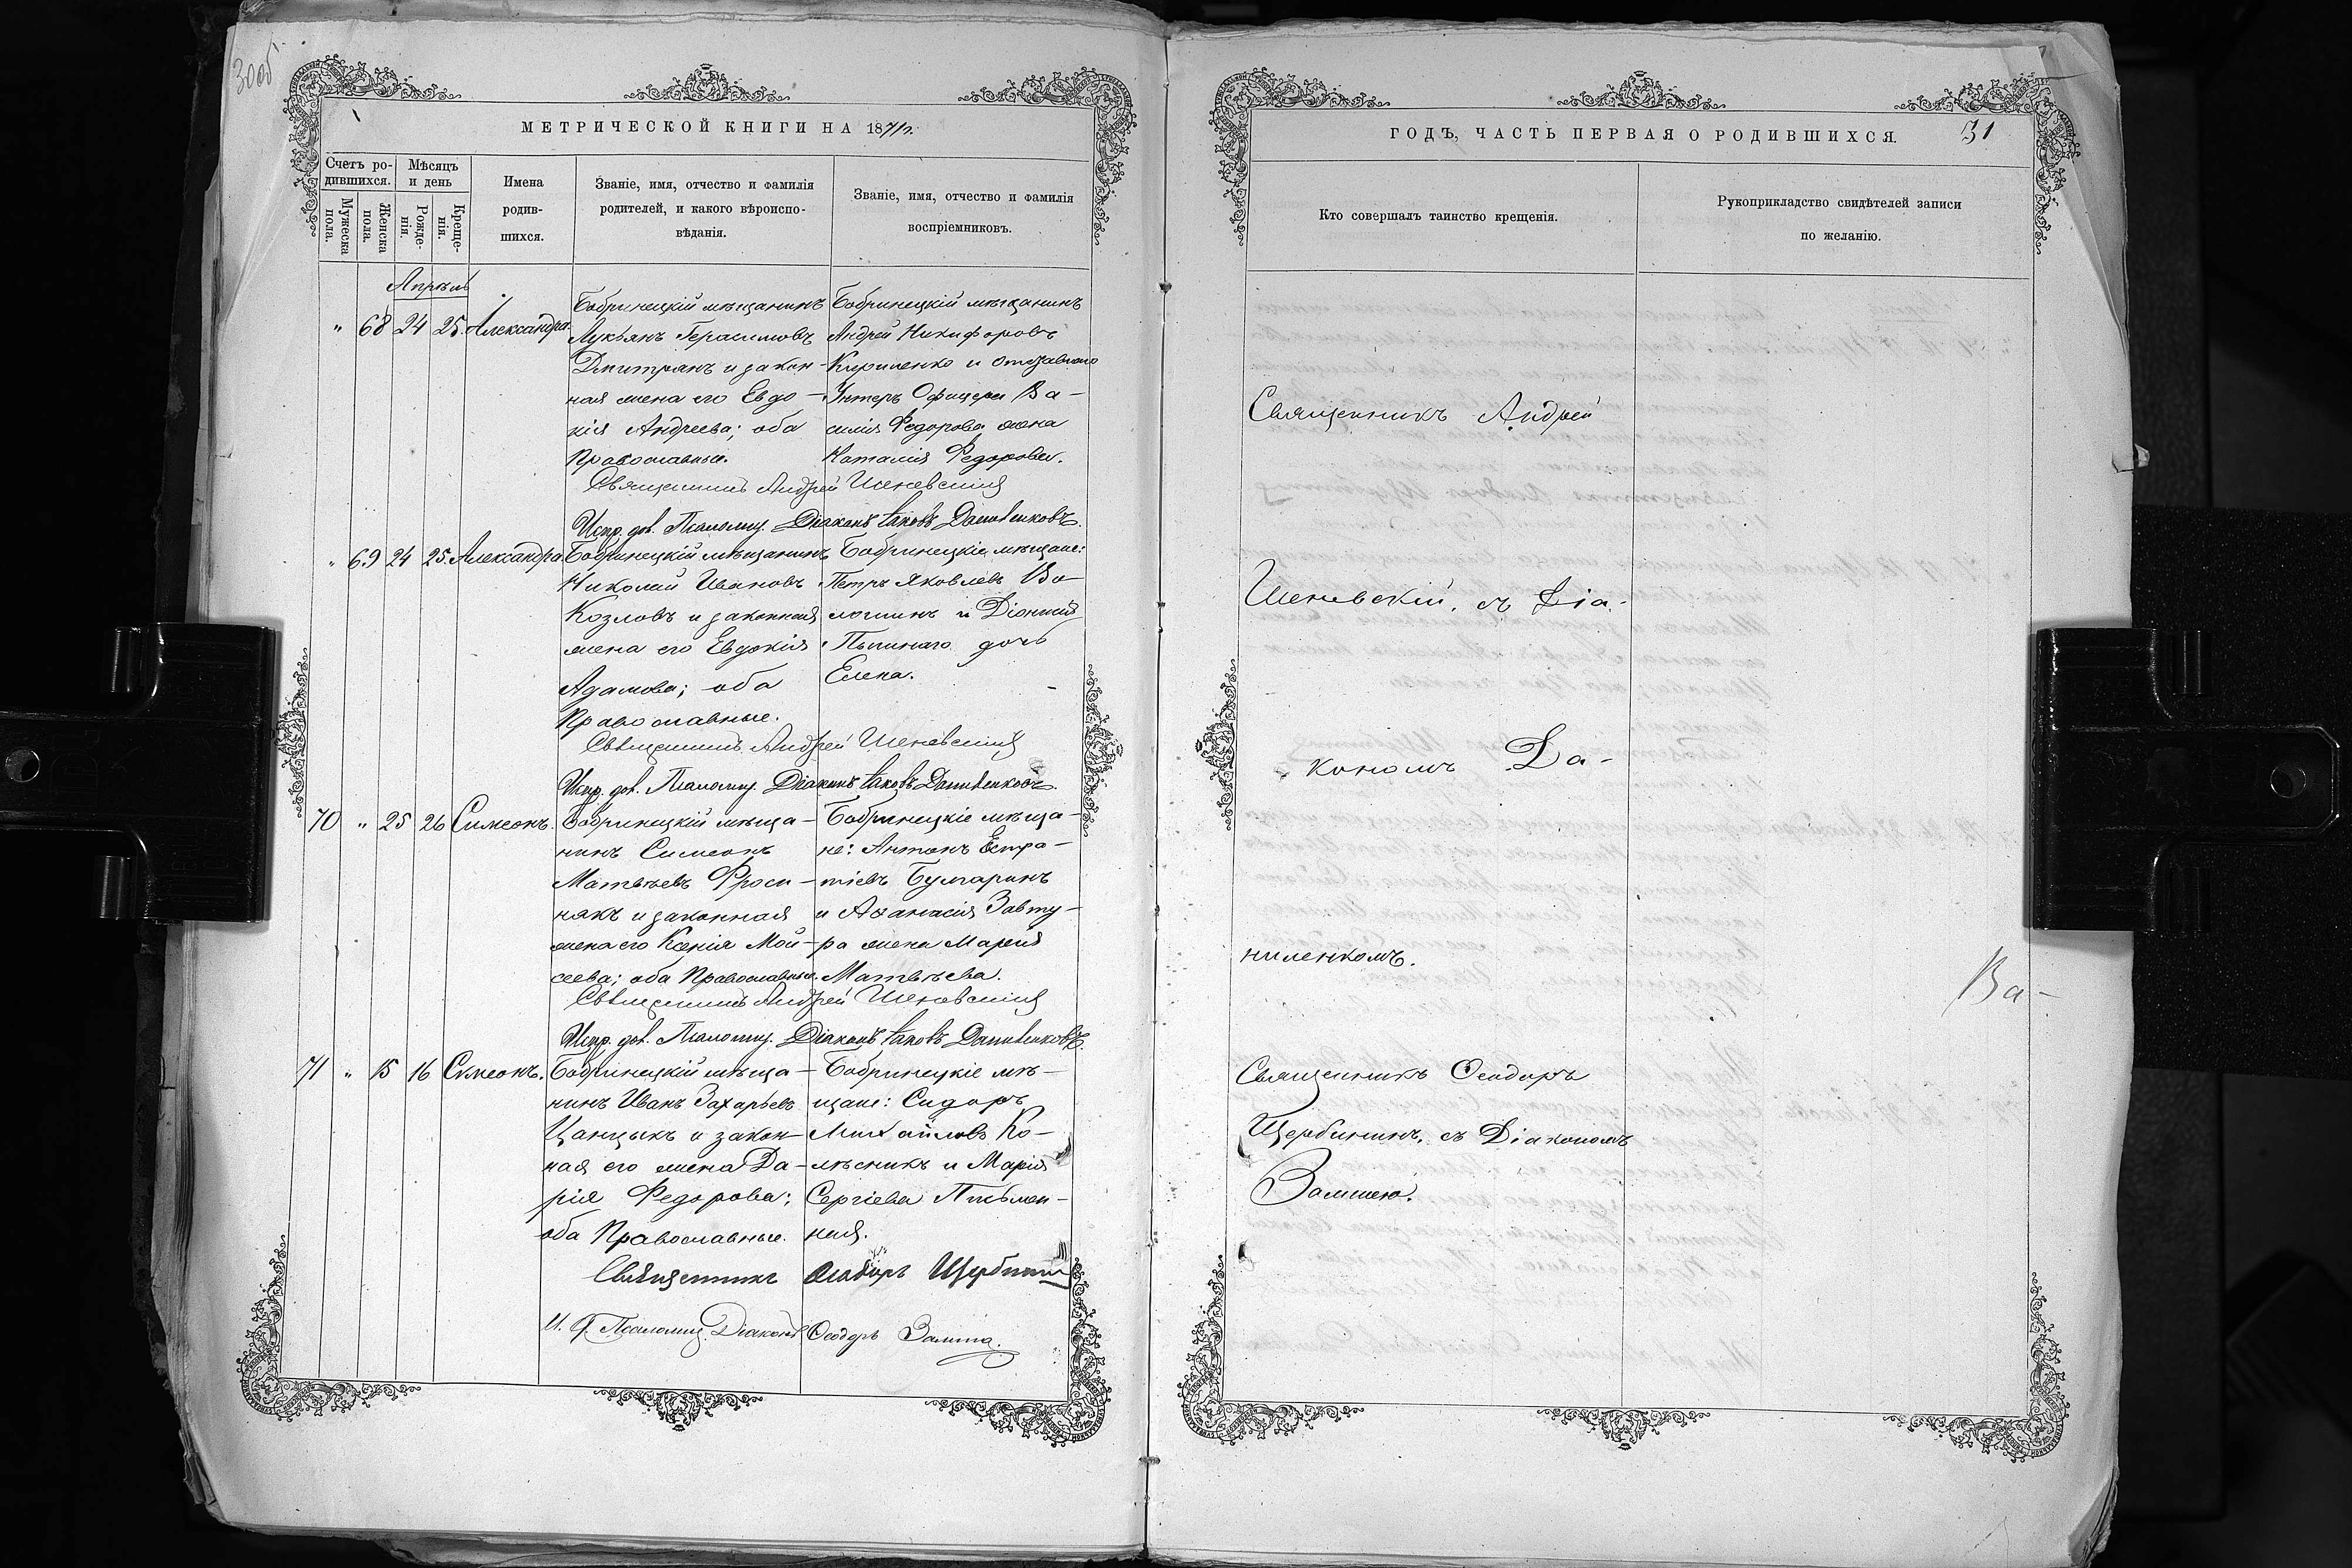 30об
МЕТРИЧЕСКОЙ КНИГИ НА 1871 г.
Счетъ ро-
дившихся.
Мѣсяцъ
и день
Мужеска
пола.
Женска
пола.
Рожде-
нія.
Креще-
нія.
Имена
родив-
шихся.
Званіе, имя, отчество и фамилія
родителей, и какого вѣроиспо-
вѣданія.
Званіе, имя, отчество и фамилія
воспріемниковъ.
Апрѣль
" 68 24 25. Александра.
Бобринецкій мѣщанинъ
Лукьянъ Герасимовъ
Дмитрянъ и закон-
ная жена его Евдо-
кія Андреева; оба
Православные.
Бобринецкій мѣщанинъ
Андрей Никифоровъ
Кириленко и отставнаго
Унтеръ Офицера Ва-
силія Федорова жена
Наталія Федорова.
Священникъ Андрей Шеневскій
Испр. дол. Псаломщ. Діаконъ Іаковъ Даниленковъ.
" 69 24 25. Александра.
Бобринецкій мѣщанинъ
Николай Ивановъ
Козловъ и законная
жена его Евдокія
Адамова; оба
Православные.
Бобринецкіе мѣщане:
Петръ Яковлевъ Во-
лошинъ и Діонисія
дочь
Елена.
Священникъ Андрей Шеневскій
Испр. дол. Псаломщ. Діаконъ Іаковъ Даниленковъ.
70 " 25 26 Симеонъ.
Бобринецкій мѣща-
нинъ Симеонъ
Матвѣевъ Фроси-
някъ и законная
жена его Ксенія Мой-
сеева; оба Православные.
Бобринецкіе мѣща-
не: Антонъ Евстра-
тіевъ Булгаринъ
и Аѳанасія Завту-
ра жена Марія
Матвѣева.
Священникъ Андрей Шеневскій
Испр. дол. Псаломщ. Діаконъ Іаковъ Даниленковъ.
71 " 15 16 Симеонъ.
Бобринецкій мѣща-
нинъ Иванъ Захарьевъ
Цанцыкъ и закон-
ная его жена Да-
рія Федорова;
оба Православные.
Бобринецкіе мѣ-
щане: Сидоръ
Михайловъ Ко-
лѣсникъ и Марія
Сергіева Письмен-
ная.
Священникъ Ѳеодоръ Щербининъ
И. д. Псаломщ. Діаконъ Ѳеодоръ Замша.
ГОДЪ, ЧАСТЬ ПЕРВАЯ О РОДИВШИХСЯ. 31
Кто совершалъ таинство крещенія.
Рукоприкладство свидѣтелей записи
по желанію.
Священникъ Андрей
Шеневскій, съ Діа-
кономъ Да-
ниленкомъ.
Ва-
Священникъ Ѳеодоръ
Щербининъ, съ Діакономъ
Замшею.